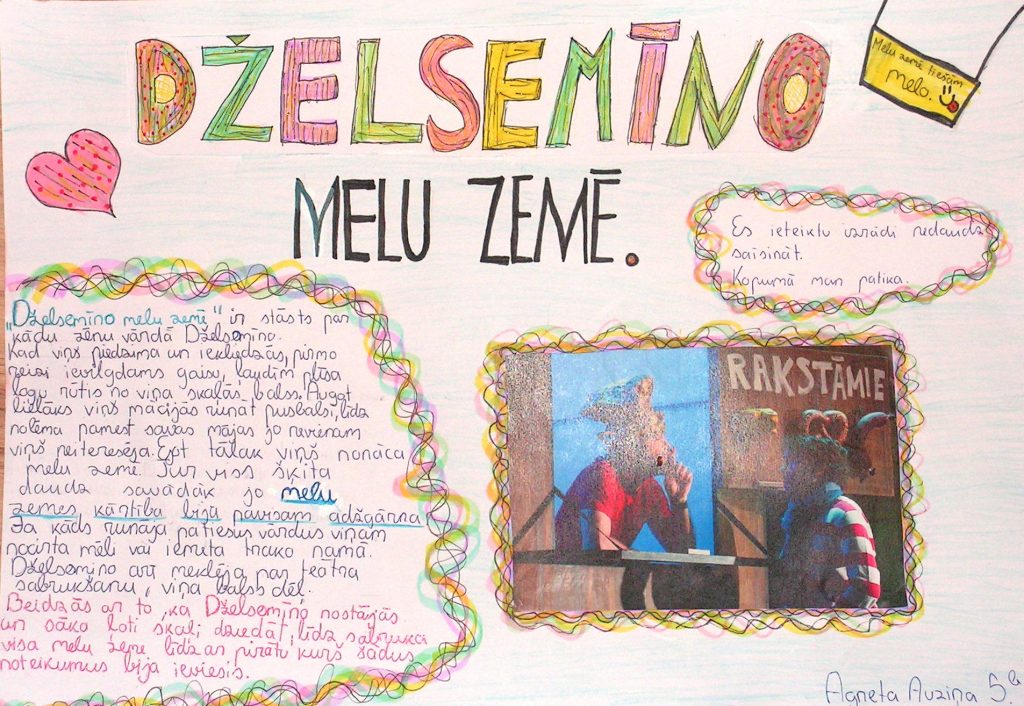 DŽELSEMĪNO
MELU ZEMĒ.
Melu zemē tiešām
melo.
Es ieteiktu izrādi nedaudz
saīsināt.
Kopumā man patika.
"Dželsemīno melu zemē" ir stāsts par
kādu zēnu vārdā Dželsemīno.
Kad viņš piedzima un iekliedzās, pirmo
reizi ievilgdams gaisu, ļaudīm plīsa
logu rūtis no viņa skaļās balss. Augot
lielāks viņš mācījās runāt pusbalsī, līdz
nolēma pamest savas mājas jo nevienam
viņš neinteresēja. Ejot tālāk viņš nonāca
melu zemē. Tur viss šķita
daudz savādāk jo melu
zemes kārtība bija pavisam adžgārna
Ja kāds runāja patiesus vārdus viņam
nocirta mēli vai iemeta trako namā.
Dželsemīno arī meklēja par teātra
sabrukšanu, viņa balss dēļ.
Beidzās ar to, ka Dželsemīno nostājās
un sāka ļoti skaļi dziedāt, līdz sabruka
visa melu zeme līdz ar pirātu kurš šādus
noteikumus bija ieviesis.
RAKSTĀMIE
Agneta Auziņa 5.b